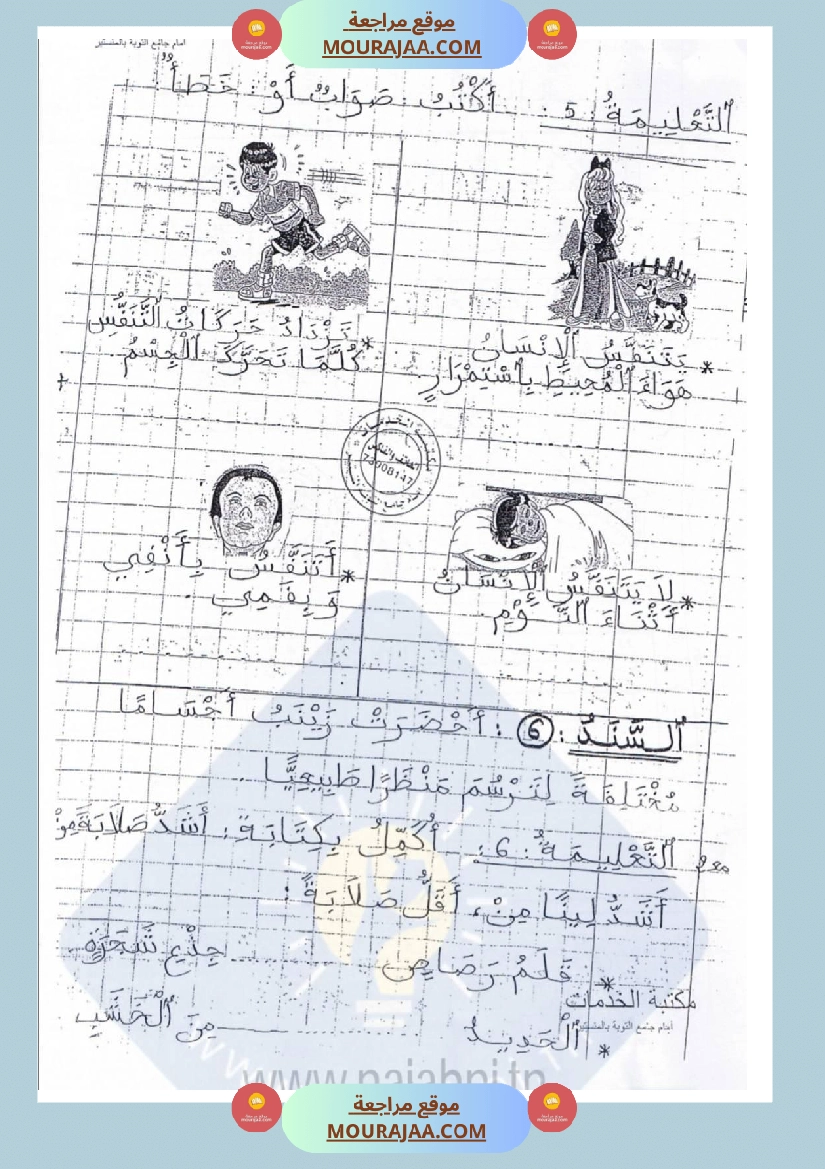 موقع مراجعة
MOURAJAA.COM
أمام جامع التوبة بالمنستير
اَلتَّعْلِيمَةُ : 5 : أَكْتُبُ : صَوَابٌ أَوْ : خَطَأٌ :
* يَتَنَفَّسُ اَلْإِنْسَانُ
هَوَاءَ اَلْمُحِيطِ بِاسْتِمْرَارٍ
* تَزْدَادُ حَرَكَاتُ اَلتَّنَفُّسِ
كُلَّمَا تَحَرَّكَ اَلْجِسْمُ
73908147
* لاَ يَتَنَفَّسُ اَلْإِنْسَانُ
أَثْنَاءَ النَّوْمِ.
* أَتَنَفَّسُ بِأَنْفِي
وَ بِفَمِي .
اَلسَّنَدُ : 6 : أَحْضَرَتْ زَيْنَبُ أَجْسَامًا
مُخْتَلِفَةً لِتَرْسُمَ مَنْظَرًا طَبِيعِيًّا
مع2 اَلتَّعْلِيمَةُ : 6 : أُكَمِّلُ بِكِتَابَةِ : أَشَدُّ صَلاَبَةً مِنْ
أَشَدُّ لِينًا مِنْ، أَقَلُّ صَلاَبَةً :
* قَلَمُ رَصَاصٍ ............ جِذْعِ شَجَرَةٍ
مكتبة الخدمات
أمام جامع التوبة بالمنستير
* اَلْحَدِيدُ ............ مِنَ اَلْخَشَبِ
www.najahni.tn
موقع مراجعة
MOURAJAA.COM